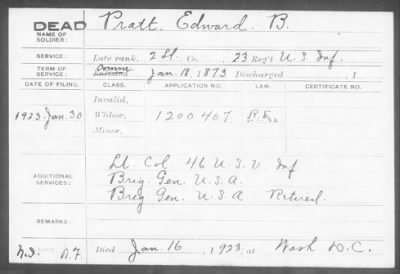 DEAD
NAME OF SOLDIER: Pratt, Edward B.
SERVICE: Late rank, 2 Lt. Co. , 23 Reg't U.S. Inf.
TERM OF SERVICE: Comm Jan. 18, 1873 Discharged , 1
DATE OF FILING. CLASS. APPLICATION NO. LAW. CERTIFICATE NO.
Invalid,
1923. Jan. 30 Widow, 1200407
Minor,
ADDITIONAL SERVICES:
Lt. Col. 46 U.S.V. Inf
Brig. Gen. U.S.A.
Brig Gen. U.S.A Retired.
REMARKS:
Died Jan. 16, 1923, at Wash D.C.